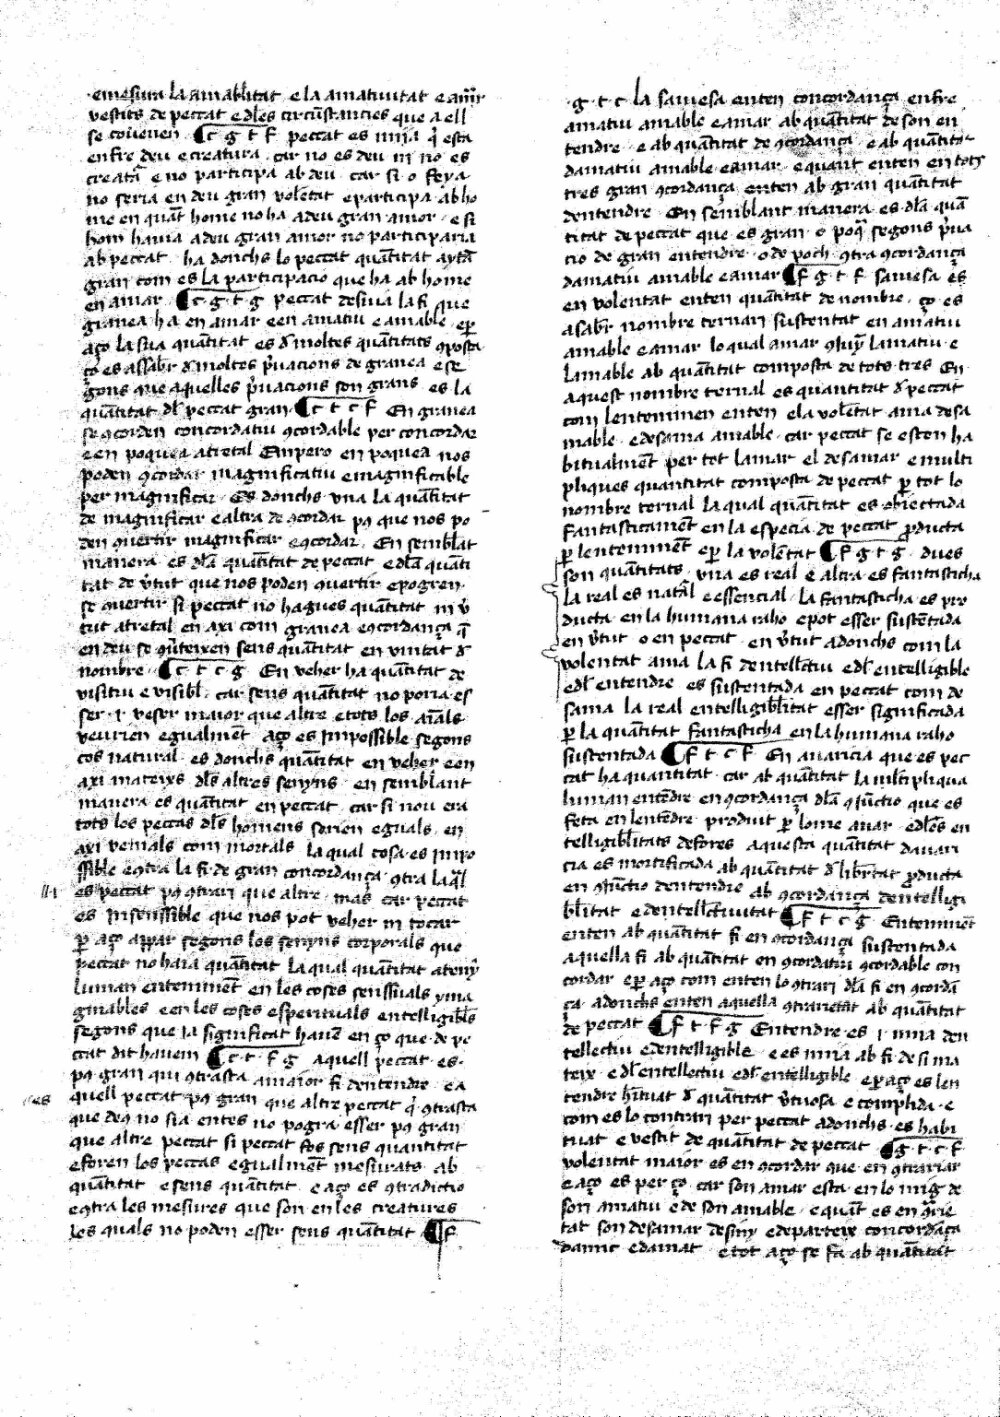 emesura la amabilitat e la amatiuitat e amar
vestits de peccat e dles circustancies que a ell
se couenen ¶ c g t f peccat es mija q̄ esta
enfre deu e creatura car no es deu ni no es
creata e no participa ab deu car si o feya
no seria en deu gran volentat e participa ab ho
me en quāt home no ha a deu gran amor e si
hom hauia a deu gran amor no participaria
ab peccat ha donchs lo peccat quātitat aytā
gran com es la participacio que ha ab home
en amar ¶ c g t g peccat desuia la fi que
granea ha en amar e en amatiu e amable e p̱
aço la sua quātitat es d moltes quātitats ꝯposta
ço es assabr d moltes p̄uacions de granea e se
gons que aquelles p̄uacions son grans es la
quātitat dl peccat gran ¶ c t c f En granea
se ꝯcorden concordatiu ꝯcordable per concordar
e en poquea atretal Empero en poquea nos
poden ꝯcordar magnificatiu e magnificable
per magnificar Es donchs vna la quātitat
de magnificar e altra de ꝯcordar pꝯ que nos po
den ꝯuertir magnificar e ꝯcordar En semblāt
manera es dla quātitat de peccat e dla quāti
tat de v̄tut que nos poden ꝯuertir e pogren
se ꝯuertir si peccat no hagues quātitat ni v̄
tut atretal en axi com granea e ꝯcordança q̄
en deu se ꝯūteixen sens quātitat en vnitat d
nombre ¶ c t c g En veher ha quātitat de
visitiu e visibl car sens quātitat no poria es
ser i veser maior que altre e tots los aīals
veurien egualmēt aço es impossible segons
cos natural es donchs quātitat en veher e en
axi mateixs dls altres senyns en semblant
manera es quātitat en peccat car si nou era
tots los peccats dls homens serien eguals en
axi venials com mortals la qual cosa es impo
ssible e ꝯtra la fi de gran concordança ꝯtra la ql̄
es peccat pꝯ ꝯtrari que altre mas car peccat
es insensible que nos pot veher ni tocar
p̱ aço appar segons los senyns corporals que
peccat no haia quātitat la qual quātitat ateny
luman entenimēt en les coses sensiuals yma
ginables e en les coses espirituals entelligibls
segons que ja significat hauē en ço que de pe
ccat dit hauem ¶ c t f g aquell peccat es
pꝯ gran qui ꝯtrasta a maior fi dentendre e a
quell peccat pꝯ gran que altre peccat q̄ ꝯtrasta
que deꝯ no sia entes no pogra esser pꝯ gran
que altre peccat si peccat fos sens quantitat
e foren los peccats egualmēt mesurats ab
quātitat e sens quātitat e aço es ꝯtradictio
e ꝯtra les mesures que son en les creatures
les quals no poden esser sens quātitat ¶ f
g t c la sauiesa enten concordança enfre
amatiu amable e amar ab quātitat de son en
tendre e ab quātitat de ꝯcordança e ab quātitat
damatiu amable e amar e quant enten en tots
tres gran ꝯcordança enten ab gran quātitat
dentendre En semblant manera es dla quā
titat de peccat que es gran o poq̄ segons p̄ua
cio de gran entendre o de poch ꝯtra ꝯcordança
damatiu amable e amar ¶ f g t f sauiesa es
en volentat enten quātitat de nombre ço es
a sabr nombre ternari sustentat en amatiu
amable e amar lo qual amar ꝯjuȳ lamatiu e
lamable ab quātitat composta de tots tres En
aquest nombre ternal es quantitat d peccat
com lenteniment enten e la volētat ama desa
mable e desama amable car peccat se esten ha
bitualmēt per tot lamar el desamar e multi
pliques quantitat composta de peccat p̱ tot lo
nombre ternal la qual quātitat es obiectada
fantasticament en la especia de peccat producta
p̱ lentenimēt e p̱ la volētat ¶ f g t g dues
son quātitats vna es real e altra es fantasticha
la real es natāl e essencial la fantasticha es pro
ducta en la humana raho e pot esser sustētada
en v̄tut o en peccat en v̄tut adonchs com la
volentat ama la fi dentellectiu e dl entelligible
e dl entendre es sustentada en peccat com de
sama la real entelligiblitat esser significada
p̱ la quātitat fantasticha en la humana raho
sustentada ¶ f t c f En auaricia que es pec
cat ha quantitat car ab quātitat la multipliqua
luman entēdre en ꝯcordança dla ꝯjuctio que es
feta en lentēdre produit p̱ lome auar e dles en
telligiblitats defores aquesta quātitat dauari
cia es mortificada ab quātitat d libr̄tat producta
en ꝯjuctio dentendre ab ꝯcordança dentelligi
blitat e dentellectiuitat ¶ f t c g Entenimēt
enten ab quātitat fi en ꝯcordança sustentada
aquella fi ab quātitat en ꝯcordatiu ꝯcordable con
cordar e p̱ aço com enten lo ꝯtrari dla fi en ꝯcordā
ça adonchs enten aquella ꝯtrarietat ab quātitat
de peccat ¶ f t f g Entendre es i mija den
tellectiu e dentelligible e es mija ab fi de si ma
teix e dl entellectiu e dl entelligible e p̱ aço es len
tendre hituat d quātitat v̄tuosa e complida e
com es lo contrari per peccat adonchs es habi
tuat e vestit de quātitat de peccat ¶ g t c f
volentat maior es en ꝯcordar que en ꝯtrariar
e aço es per ço car son amar esta en lo mig de
son amatiu e de son amable e quāt es en ꝯrie
tat son desamar desuny e departeix concordāça
damic e damat e tot aço se fa ab quātitat